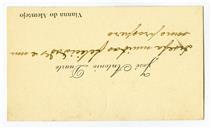 José Antonio Duarte
deseja muitas felicidades e um
anno prospero
Vianna do Alemtejo